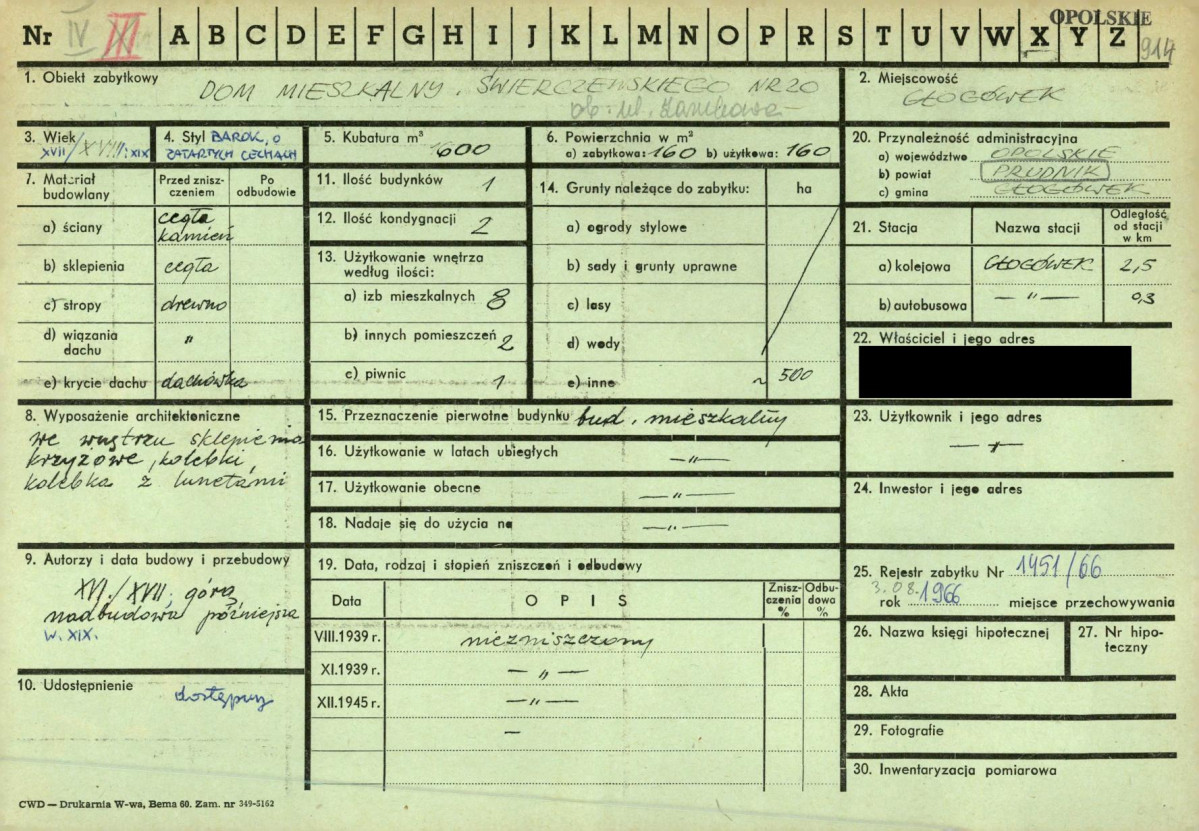 Nr IV III A B C D E F G H I J K L M N O P R S T U V W X Y Z
OPOLSKIE
914
1. Obiekt zabytkowy
DOM MIESZKALNY. ŚWIERCZEWSKIEGO NR 20
ob. ul. Zamkowa
2. Miejscowość
GŁOGÓWEK
3. Wiek
XVII/XVIII: XIX
4. Styl BAROK, O
ZATARTYCH CECHACH
5. Kubatura m³
1600
6. Powierzchnia w m²
a) zabytkowa: 160 b) użytkowa: 160
20. Przynależność administracyjna
a) województwo OPOLSKIE
b) powiat PRUDNIK
c) gmina GŁOGÓWEK
7. Materiał
budowlany
Przed znisz-
czeniem
Po
odbudowie
a) ściany cegła
kamień
b) sklepienia cegła
c) stropy drewno
d) wiązania
dachu "
e) krycie dachu dachówka
11. Ilość budynków 1
12. Ilość kondygnacji 2
13. Użytkowanie wnętrza
według ilości:
a) izb mieszkalnych 8
b) innych pomieszczeń 2
c) piwnic 1
14. Grunty należące do zabytku: ha
a) ogrody stylowe
b) sady i grunty uprawne
c) lasy
d) wody
e) inne ~ 500
21. Stacja Nazwa stacji Odległość
od stacji
w km
a) kolejowa GŁOGÓWEK 2,5
b) autobusowa — " — 0,3
22. Właściciel i jego adres
8. Wyposażenie architektoniczne
we wnętrzu sklepienia
krzyżowe, kolebki,
kolebka z lunetami
15. Przeznaczenie pierwotne budynku bud. mieszkalny
16. Użytkowanie w latach ubiegłych — " —
17. Użytkowanie obecne — " —
18. Nadaje się do użycia na — " —
23. Użytkownik i jego adres
— " —
24. Inwestor i jego adres
9. Autorzy i data budowy i przebudowy
XVI./XVII. górą
nadbudowa późniejsza
W. XIX.
10. Udostępnienie
dostępny
19. Data, rodzaj i stopień zniszczeń i odbudowy
Data OPIS Znisz-
czenia
% Odbu-
dowa
%
VIII.1939 r. niezniszczony
XI.1939 r. — " —
XII.1945 r. — " —
—
25. Rejestr zabytku Nr 1451/66
3.08.
rok 1966 miejsce przechowywania
26. Nazwa księgi hipotecznej
27. Nr hipo-
teczny
28. Akta
29. Fotografie
30. Inwentaryzacja pomiarowa
CWD — Drukarnia W-wa, Bema 60. Zam. nr 349-5162